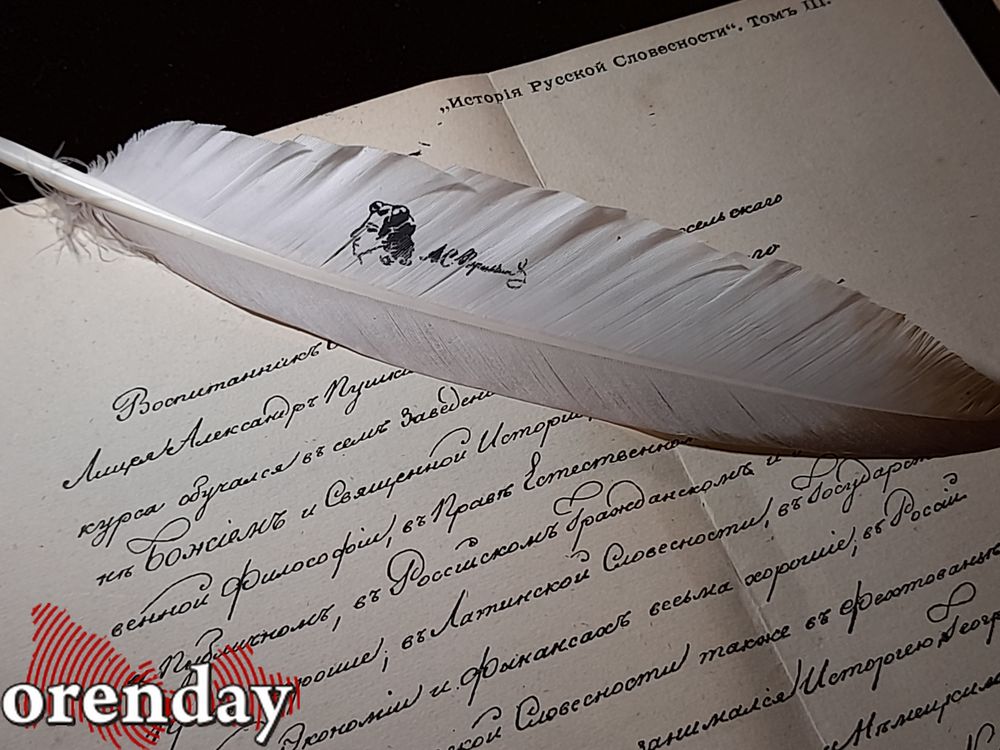 „Исторія Русской Словесности“. Томъ III.
сельскаго
го
Воспитанникъ
Лицея Александръ Пушки
курса обучался въ семъ Заведені
нѣ Божіемъ и Священной Исторіи,
венной Философіи, въ Правѣ Естественно
Публичномъ, въ Россійскомъ Гражданскомъ и
рошіе; въ Латинской Словесности, въ Государст
Экономіи и Финансахъ весьма хорошіе; въ Россій
ской Словесности также въ Фехтованьи
занимался Исторіею Геогр
Нѣмецким
А.С. Пушкинъ
orenday